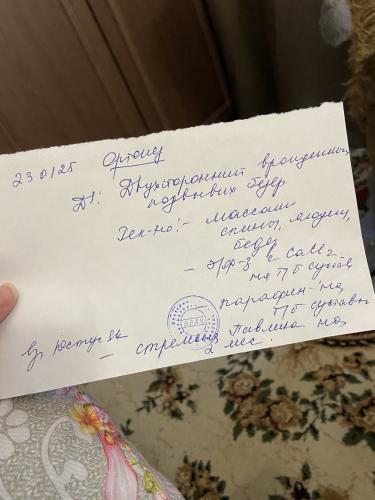 23 01 25 Ортопед
Ds: Двухсторонний врожденный
подвывих бедер
Рек-но: - массаж
спины, ягодиц,
бедер
- эф-з с CaCl2
на ТБ суставы
- парафин на
ТБ суставы
- стремена Павлика на
2 мес.
ВРАЧ